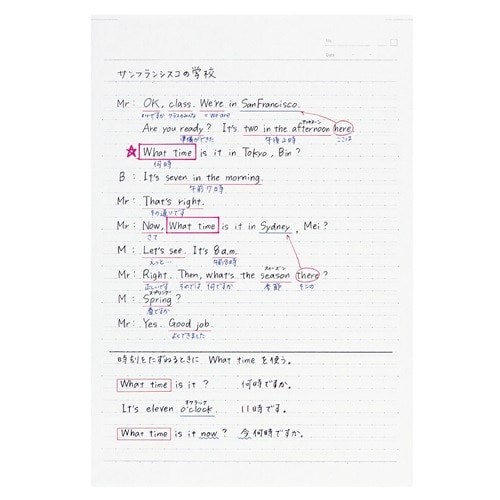 サンフランシスコの学校
Mr: OK, class. We're in SanFrancisco.
いいですか クラスのみんな = We are
アフタヌーン
Are you ready? It's two in the afternoon here
準備ができた 午後2時 ここは
☆ What time is it in Tokyo, Bin?
何時
B: It's seven in the morning.
午前7時
Mr: That's right.
その通りです
Mr: Now, What time is it in Sydney, Mei?
さて
M: Let's see. It's 8 a.m.
えっと… 午前8時
スィーズン
Mr: Right. Then, what's the season there?
正しいです それでは 何ですか 季節 そこの
スプリング
M: Spring?
春ですか
Mr: Yes. Good job.
よくできました
時刻をたずねるときに What time を使う。
What time is it? 何時ですか。
オクラック
It's eleven o'clock. 11時です。
What time is it now? 今何時ですか。